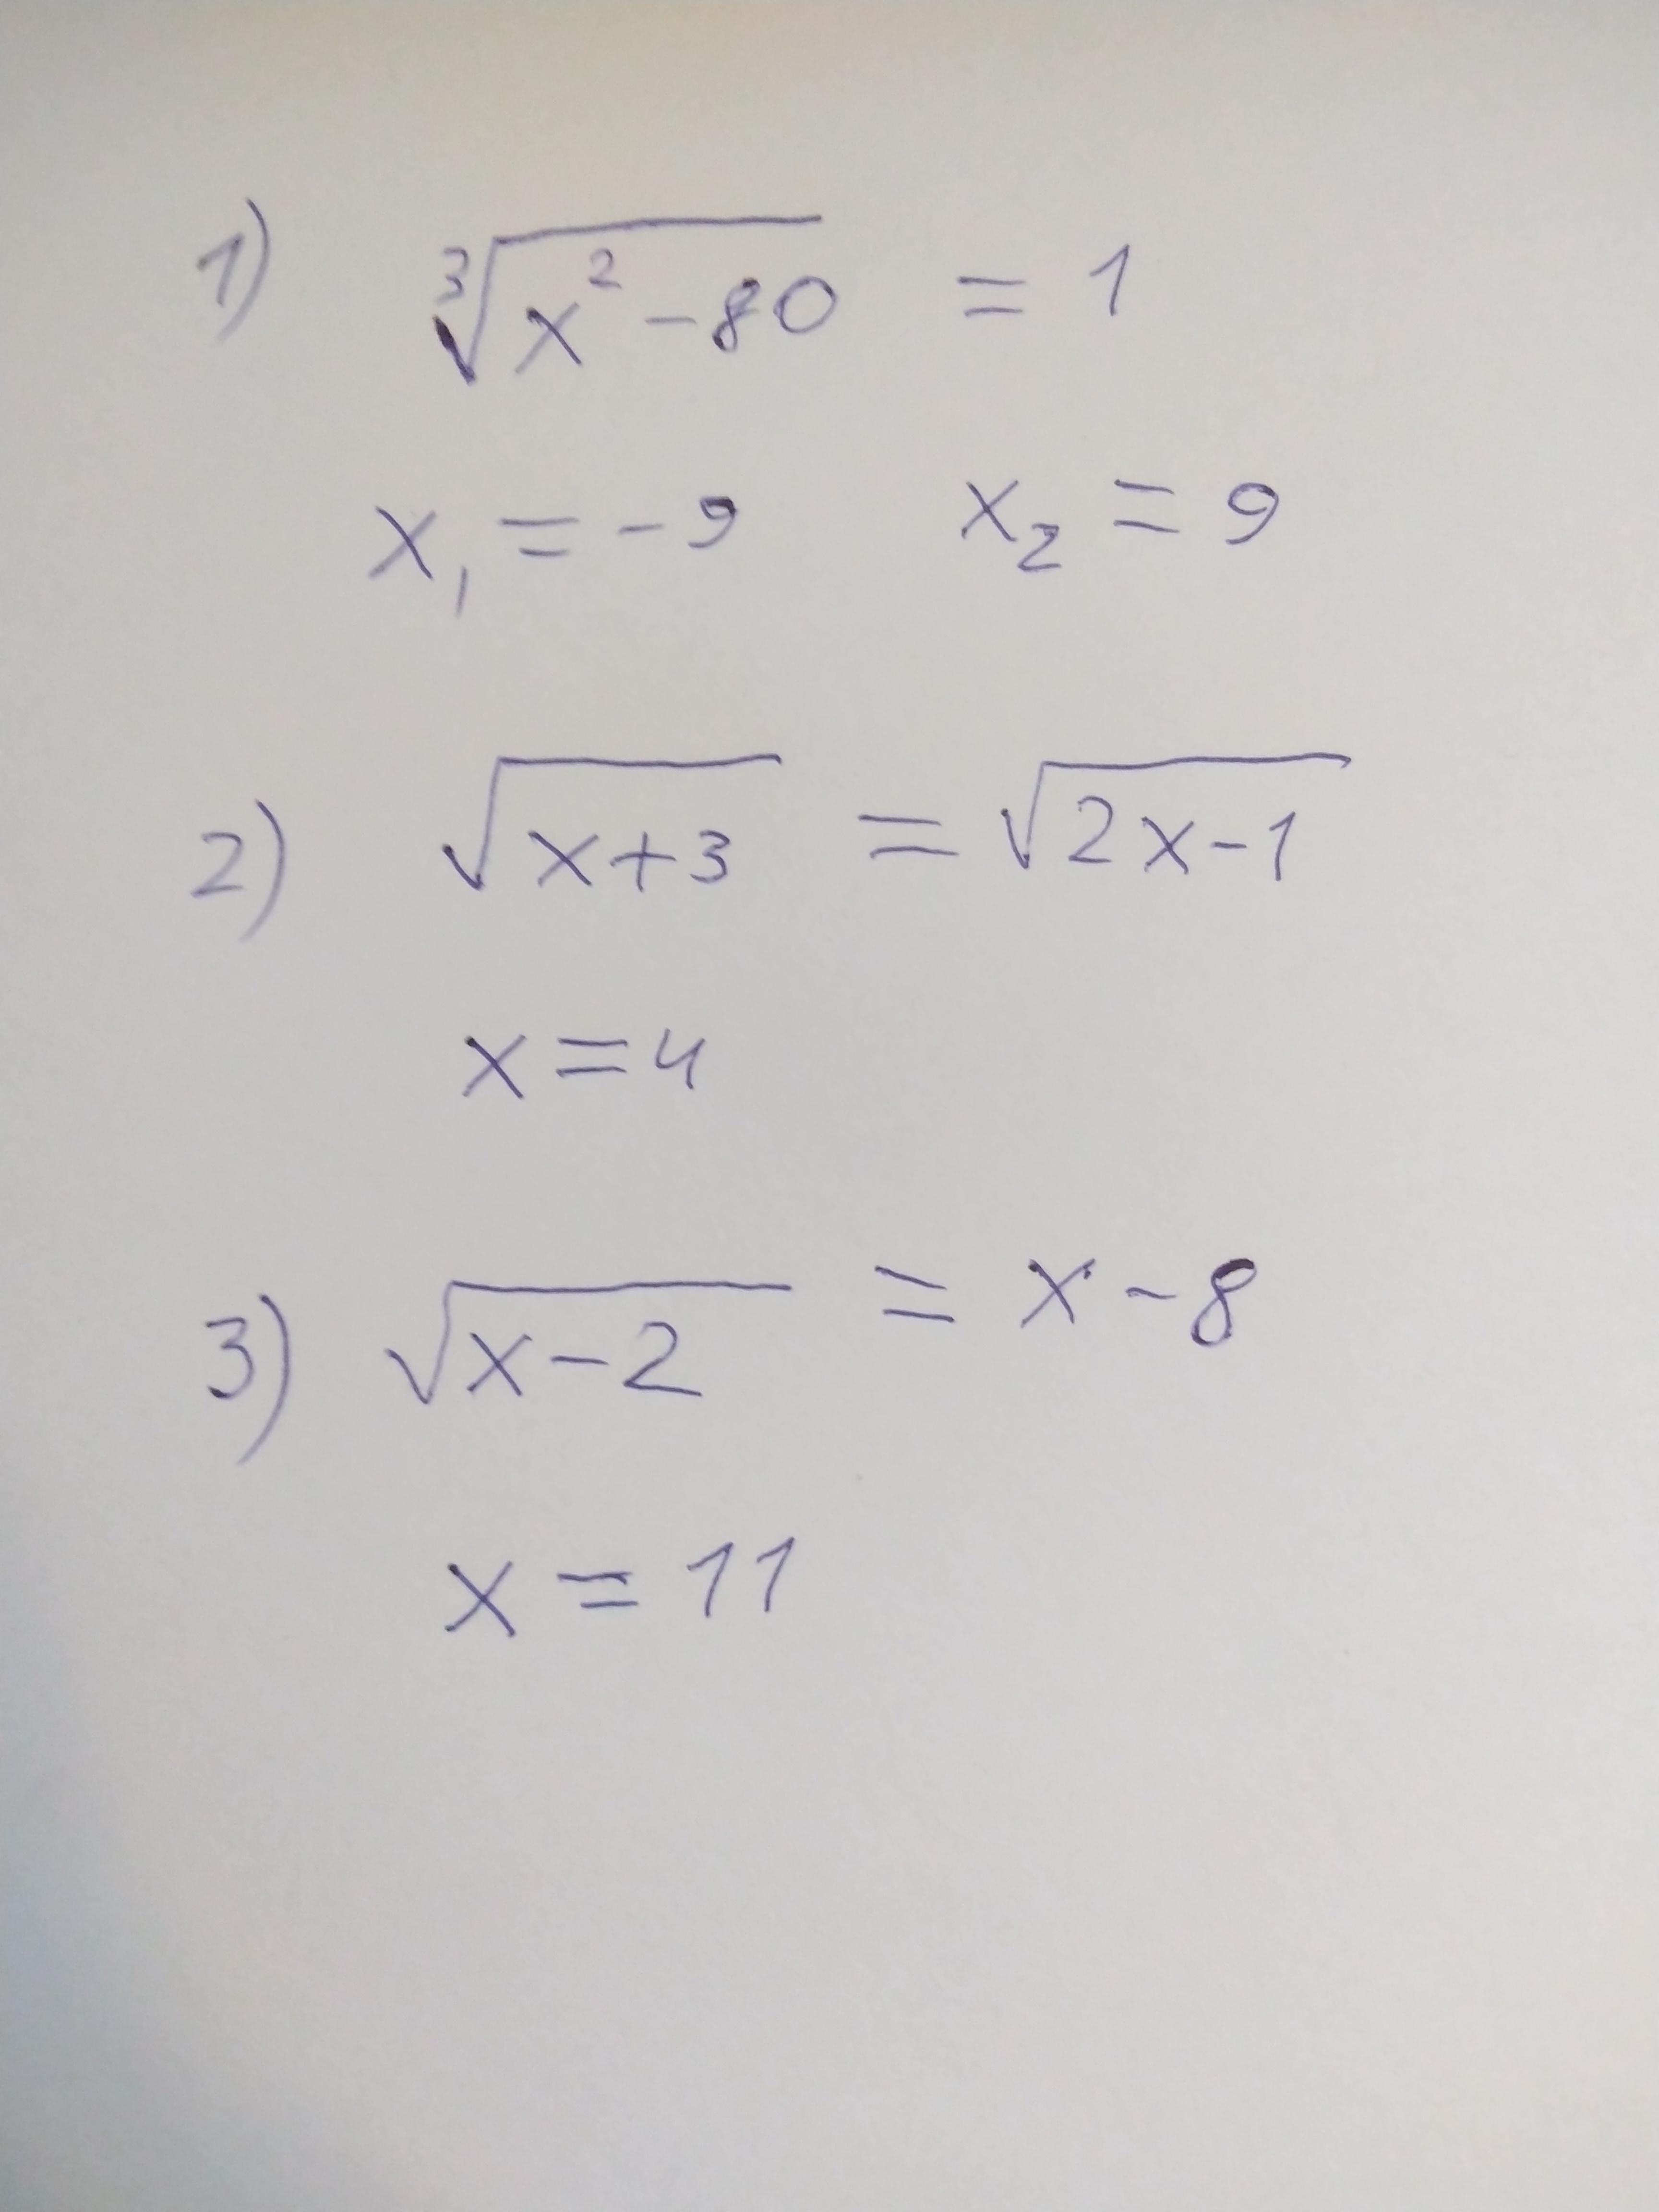 1) ∛(x² - 80) = 1
x₁ = -9 x₂ = 9
2) √(x+3) = √(2x-1)
x = 4
3) √(x-2) = x - 8
x = 11